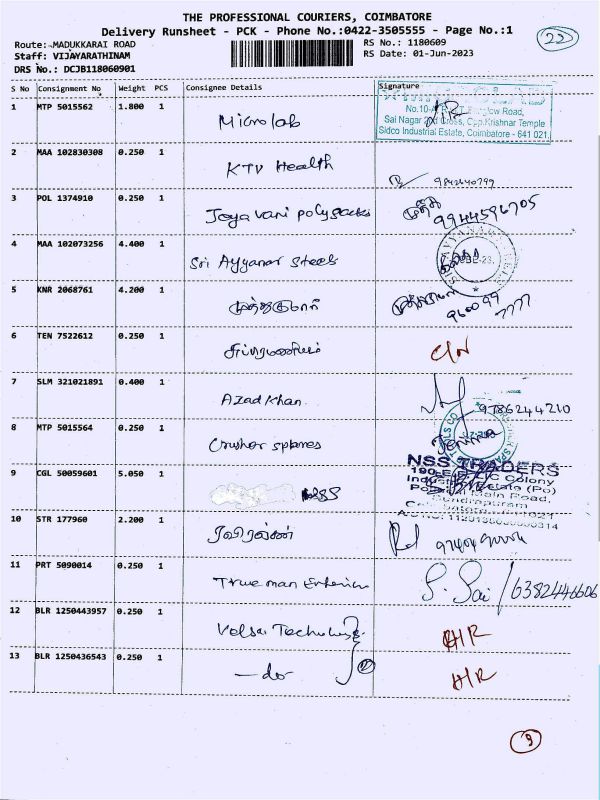 THE PROFESSIONAL COURIERS, COIMBATORE
Delivery Runsheet - PCK - Phone No.:0422-3505555 - Page No.:1
22
Route: MADUKKARAI ROAD
RS No.: 1180609
Staff: VIJAYARATHINAM
RS Date: 01-Jun-2023
DRS No.: DCJB118060901
S No Consignment No Weight PCS Consignee Details Signature
1 MTP 5015562 1.800 1 Microlab
Road,
Sai Nagar Cross, Opp.Krishnar Temple
Sidco Industrial Estate, Coimbatore - 641 021.
2 MAA 102830308 0.250 1 KTV Health
3 POL 1374910 0.250 1 Jayavani polysacks 9944596705
4 MAA 102073256 4.400 1 Sri Ayyanar Steels
5 KNR 2068761 4.200 1 முத்துகுமார்
960097
7777
6 TEN 7522612 0.250 1 சுப்ரமணியம்
7 SLM 321021891 0.400 1 Azad Khan 9786244210
8 MTP 5015564 0.250 1 Crusher spares
9 CGL 50059601 5.050 1
NSS TRADERS
Colony
Estate (Po)
Main Road,
Sundrapuram
10 STR 177960 2.200 1
11 PRT 5090014 0.250 1 Trueman S. Sai / 6382446606
12 BLR 1250443957 0.250 1 H/R
13 BLR 1250436543 0.250 1 —do— H/R
9